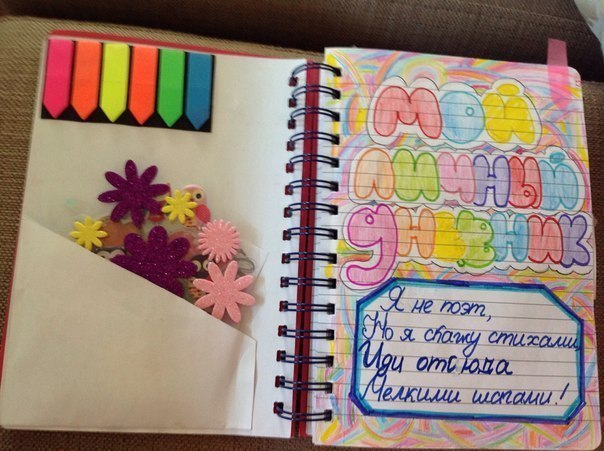 МОЙ
ЛИЧНЫЙ
ДНЕВНИК
Я не поэт,
Но я скажу стихами,
Иди отсюда
Мелкими шагами!